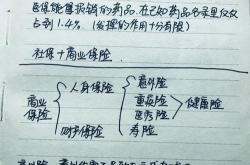 医保能够报销的药品,在已知药品名录里仅仅
占到1.4%.(发挥的作用十分有限)
社保+商业保险
商业保险
人身保险
财产保险
意外险
重疾险
医疗险
寿险
健康险